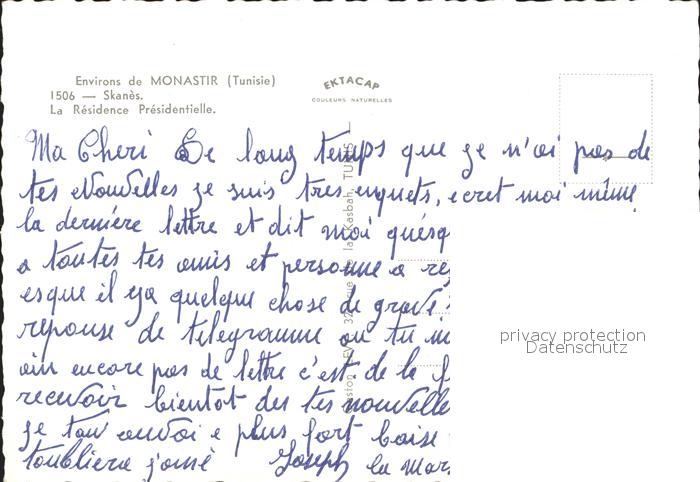 Environs de MONASTIR (Tunisie)
1506 — Skanès.
La Résidence Présidentielle.
EKTACAP
COULEURS NATURELLES
Ma Cheri De long temps que je n'ai pas de
tes Nouvelles je suis tres enquets, ecret moi même
la dernière lettre et dit moi quésq
a toutes tes amis et personne a re
esque il ya quelque chose de gravé
reponse de telegramme ou tu m
ain encore pas de lettre c'est de la f
recevoir bientot des tes nouvelle
je tan anvoi e plus fort baise
toubliera jamé Joseph la Mar
privacy protection
Datenschutz